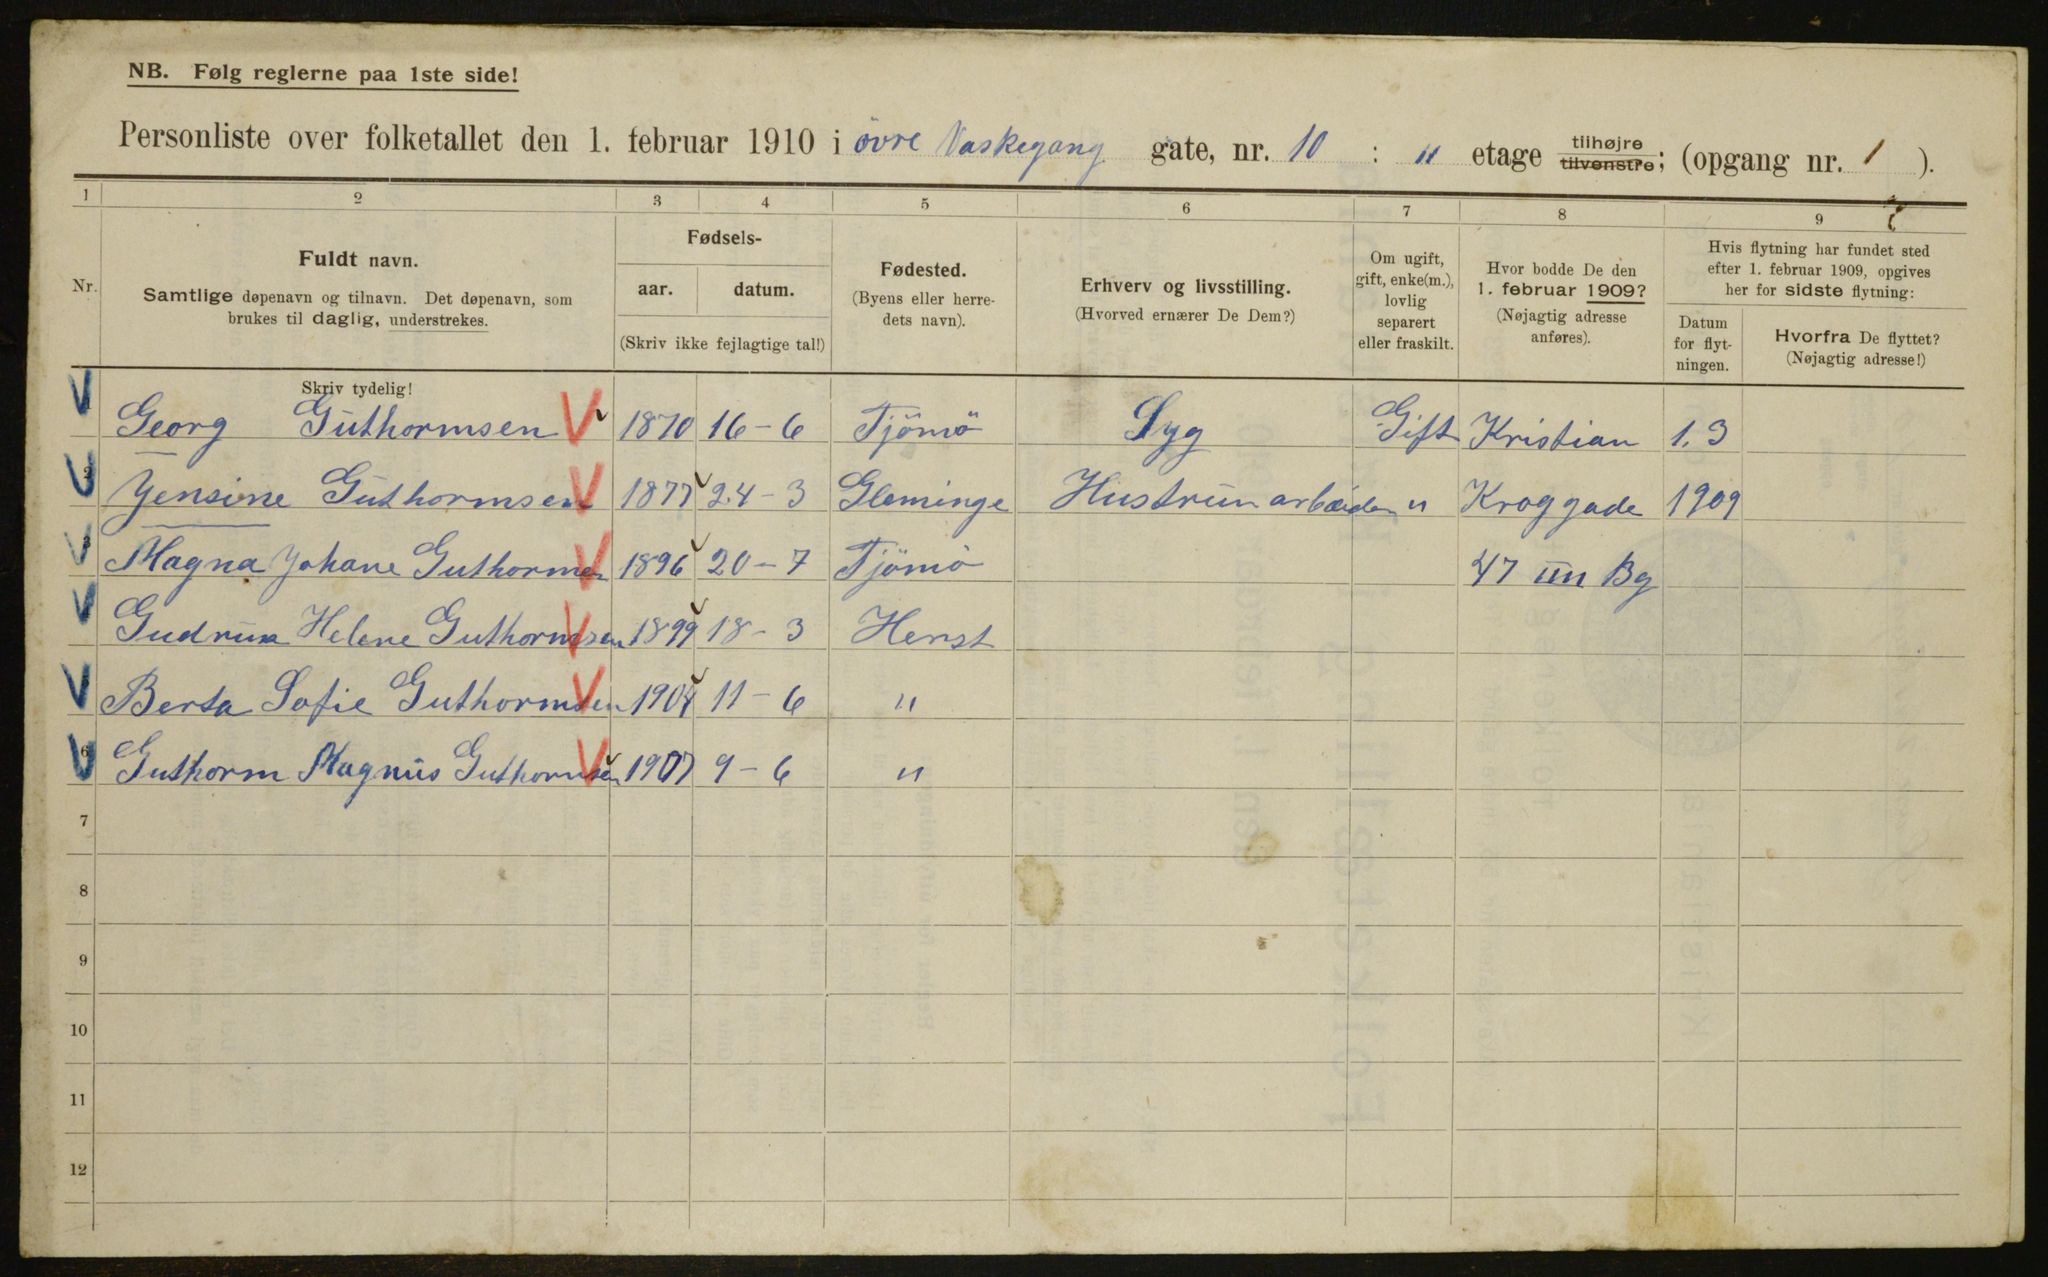 NB. Følg reglerne paa 1ste side!
Personliste over folketallet den 1. februar 1910 i övre Vaskegang gate, nr. 10 : II etage tilhøjre tilvenstre; (opgang nr. 1 ).
1 2 3 4 5 6 7 8 9
Nr.
Fuldt navn.
Samtlige døpenavn og tilnavn. Det døpenavn, som
brukes til daglig, understrekes.
Skriv tydelig!
Fødsels-
aar. datum.
(Skriv ikke fejlagtige tal!)
Fødested.
(Byens eller herre-
dets navn).
Erhverv og livsstilling.
(Hvorved ernærer De Dem?)
Om ugift,
gift, enke(m.),
lovlig
separert
eller fraskilt.
Hvor bodde De den
1. februar 1909?
(Nøjagtig adresse
anføres).
Hvis flytning har fundet sted
efter 1. februar 1909, opgives
her for sidste flytning:
Datum
for flyt-
ningen.
Hvorfra De flyttet?
(Nøjagtig adresse!)
Georg Guthormsen 1870 16-6 Tjömö Syg Gift Kristian 1. 3
2 Jensine Guthormsen 1877 24-3 Gleminge Hustrun arbeider " Kroggade 1909
3 Magna Johane Guthormsen 1896 20-7 Tjömö 47 III Bg
Gudrun Helene Guthormsen 1899 18-3 Herst
Berta Sofie Guthormsen 1904 11-6 "
6 Guthorm Magnus Guthormsen 1907 9-6 "
7
8
9
10
11
12